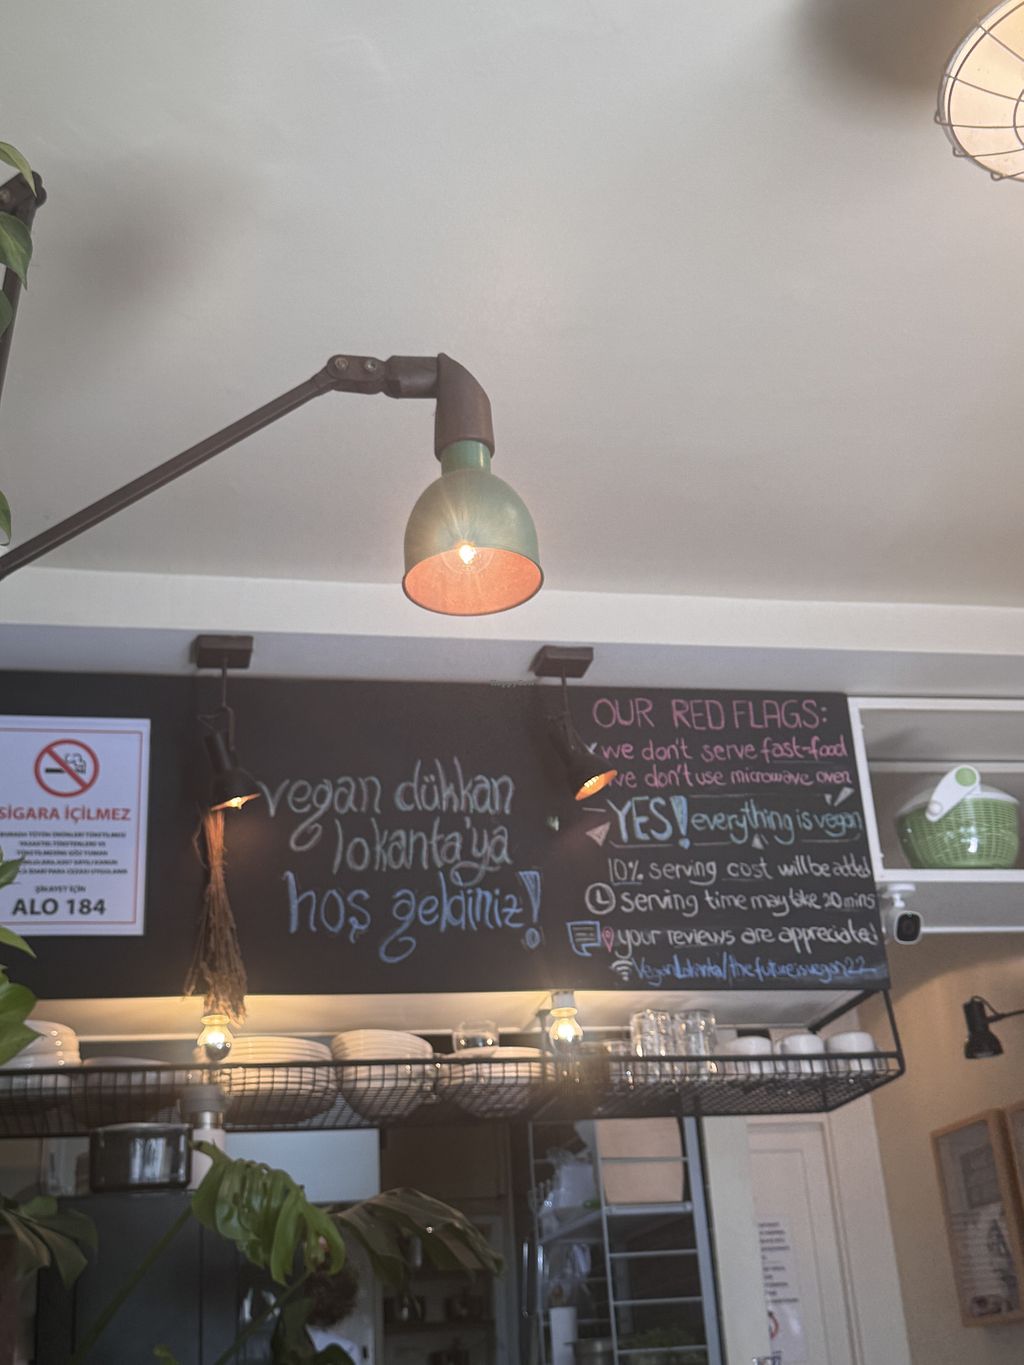 SİGARA İÇİLMEZ
ŞİKAYET İÇİN
ALO 184
vegan dükkan
lokanta'ya
hoş geldiniz!
OUR RED FLAGS:
x we don't serve fast-food
we don't use microwave oven
YES! everything is vegan
10% serving cost will be added
serving time may take 20 mins
your reviews are appreciated!
VeganLokanta/thefutureisvegan22